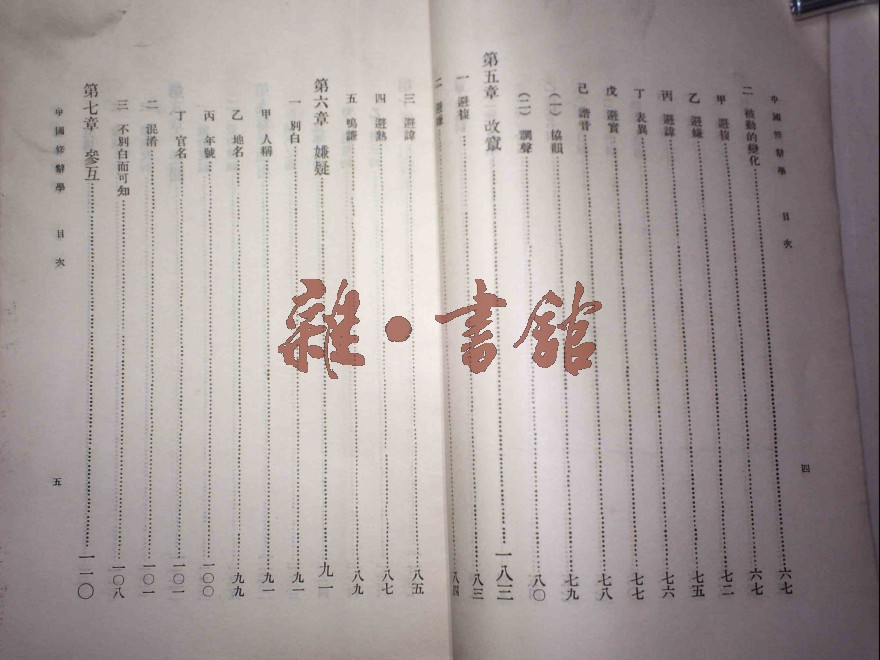 中國修辭學 目次
二 被動的變化……六七
甲 避複……六七
乙 避嫌……七二
丙 避諱……七五
丁 表異……七六
戊 避實……七七
己 諧音……七八
(一) 協韻……七九
(二) 調聲……八〇
第五章 改竄……一八三
一 避複……八三
二……八四
四
三 避諱……八五
四 避熟……八七
五 鳴謙……八九
第六章 嫌疑……九一
一 別白……九一
甲 人稱……九一
乙 地名……九九
丙 年號……一〇〇
丁 官名……一〇一
二 混淆……一〇一
三 不別白而可知……一〇八
第七章 參互……一一〇
中國修辭學 目次
五
雜·書館